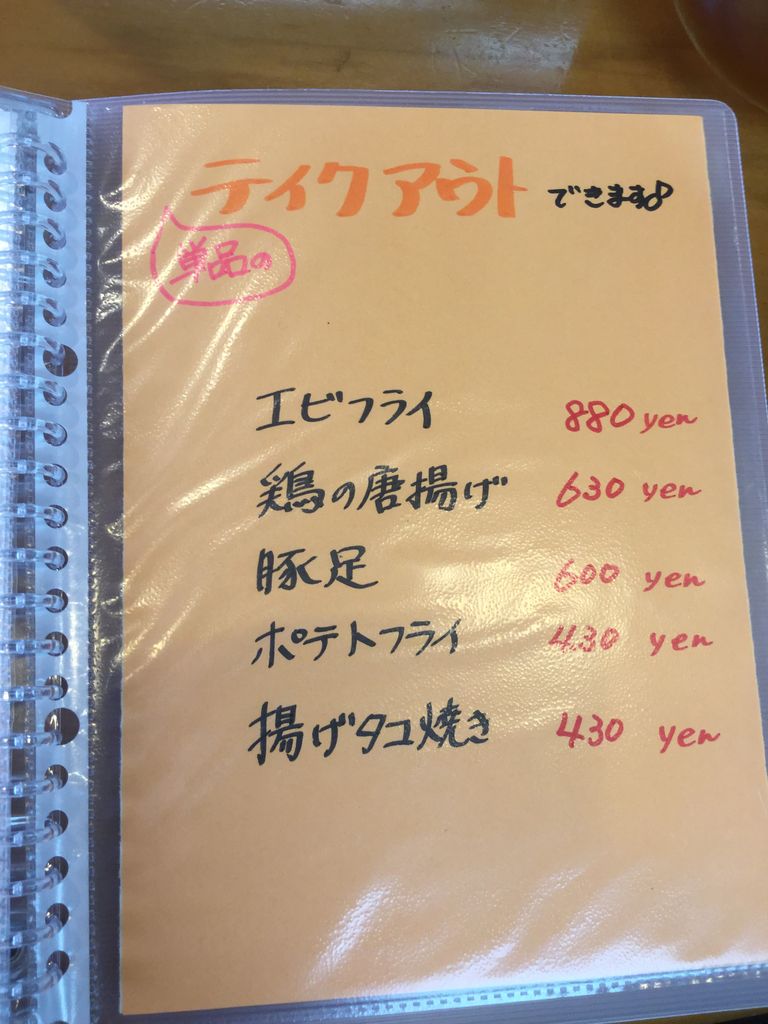 テイクアウトできます♪
単品の
エビフライ 880 yen
鶏の唐揚げ 630 yen
豚足 600 yen
ポテトフライ 430 yen
揚げタコ焼き 430 yen